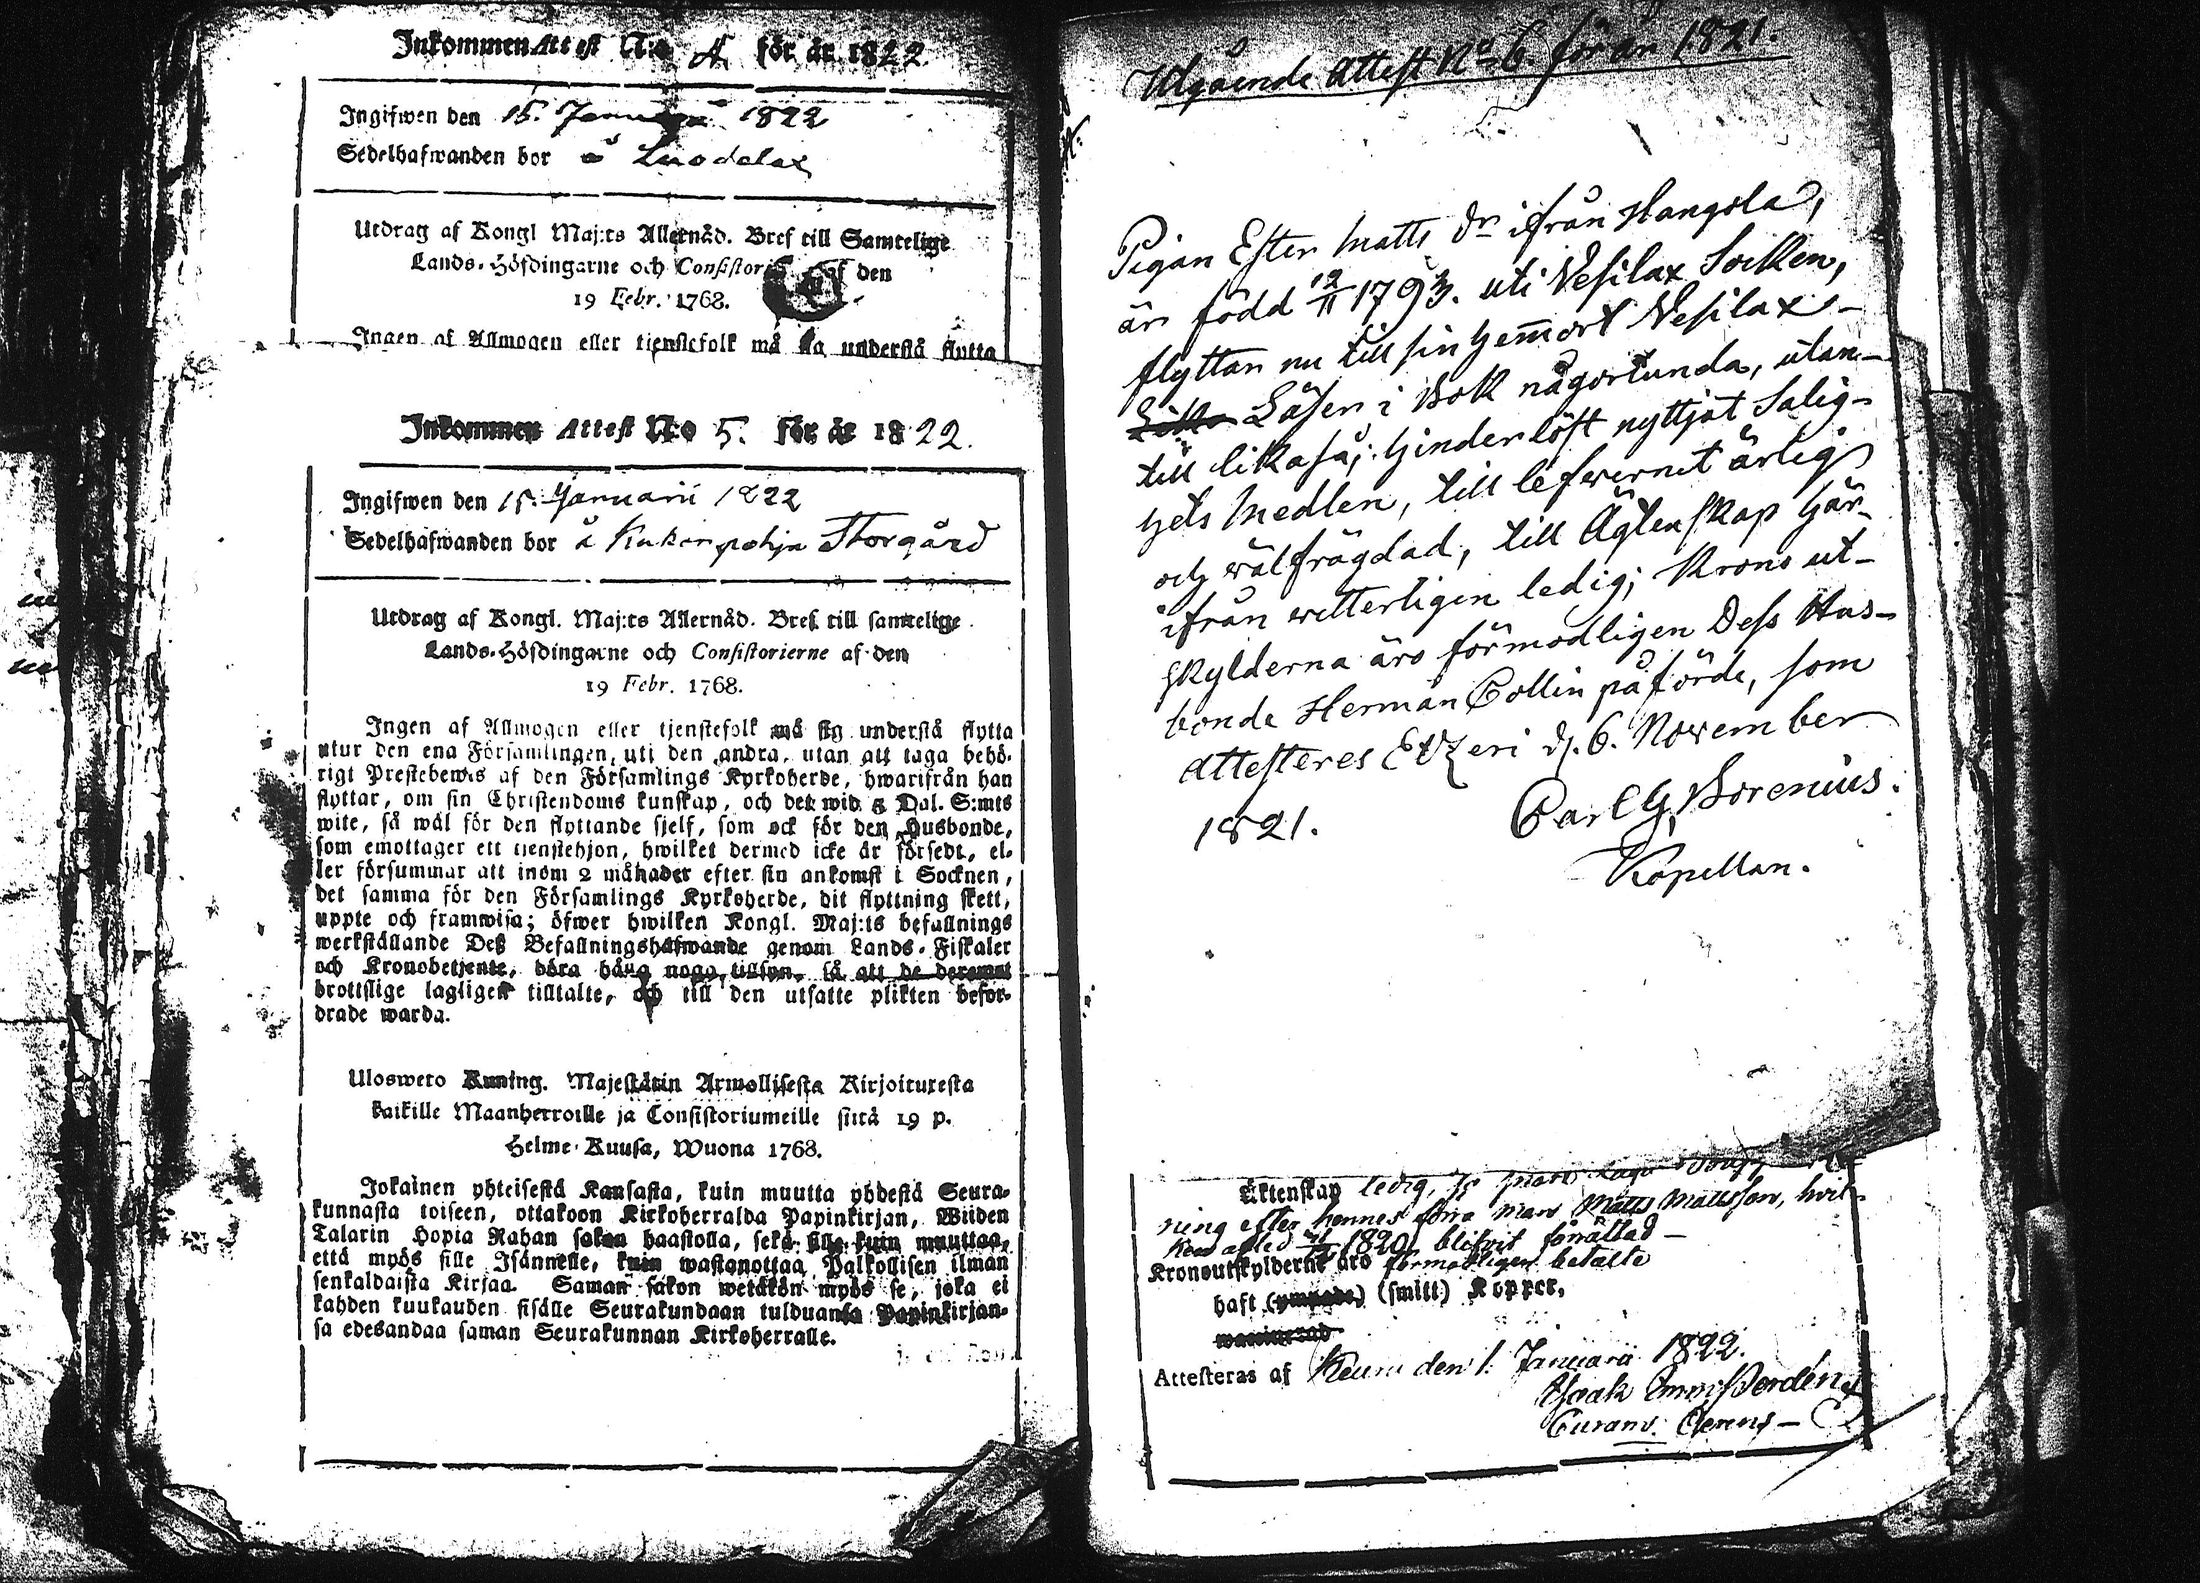 Inkommen Attest N:o 4 för år 1822.
Ingifwen den 15. Januarii 1822
Sedelhafwanden bor å Luodelax
Utdrag af Kongl Maj:ts Allernåd. Bref till Samtelige
Lands-Höfdingarne och Consistori af den
19 Febr. 1768.
Ingen af Allmogen eller tjenstefolk må sig understå flytta
Inkommen Attest No 5. för år 1822.
Ingifwen den 15. Januarii 1822
Sedelhafwanden bor å Storgård
Utdrag af Kongl. Maj:ts Allernåd. Bref till samtelige
Lands-Höfdingarne och Consistorierne af den
19 Febr. 1768.
Ingen af Allmogen eller tjenstefolk må sig understå flytta
utur den ena Församlingen, uti den andra, utan att taga behö-
rigt Prestebewis af den Församlings Kyrkoherde, hwarifrån han
flyttar, om sin Christendoms kunskap, och det wid 5 Dal. S:mts
wite, så wäl för den flyttande sjelf, som ock för den Husbonde,
som emottager ett tjenstehjon, hwilket dermed icke är försedt, el-
ler försummar att inom 2 månader efter sin ankomst i Socknen,
det samma för den Församlings Kyrkoherde, dit flyttning skett,
uppte och framwisa; öfwer hwilken Kongl. Maj:ts befallnings
werkställande Deß Befallningshafwande genom Lands-Fiskaler
och Kronobetjente, böra hafwa noga tillsyn, så att de deremot
brottslige lagligen tilltalte, och till den utsatte plikten befor-
drade warda.
Ulosweto Kuning. Majestätin Armollisesta Kirjoituxesta
kaikille Maanherroille ja Consistoriumeille siitä 19 p.
Helme-Kuusa, Wuona 1768.
Jokainen yhteisestä Kansasta, kuin muutta yhdestä Seura-
kunnasta toiseen, ottakoon Kirkoherralda Papinkirjan, Wiiden
Talarin Hopia Rahan sakon haastolla, sekä sille kuin muuttaa,
että myös sille Isännelle, kuin wastanottaa Palkollisen ilman
senkaldaista Kirjaa. Saman sakon wetäkön myös se, joka ei
kahden kuukauden sisälle Seurakundaan tulduansa Papinkirjan-
sa edesandaa saman Seurakunnan Kirkoherralle.
Utgående Attest No 6. för år 1821.
Pigan Ester Matts Dr ifrån Hangola,
är född 12/11 1793. uti Vesilax Socken,
flyttar nu till sin hemort Vesilax-
Läser i Bok någorlunda, utan-
till likaså; hinderlöst nyttjat Salig-
hets Medlen, till lefwernet ärlig
och wälfrägdad, till Ägtenskap här-
ifrån witterligen ledig; Krono ut-
skylderna äro förmodligen Dess Hus-
bonde Herman Collin påförde, som
attesteres Etzeri d. 6. November
1821. Carl G. Borenius.
Kapellan.
Äktenskap ledig,
ning efter hennes förra man Matts Mattsson, hvil-
1820 blifvit förrättad-
Kronoutskylderne äro förmodligen betalte
haft (ympade) (smitt) Koppor,
Attesteras af Keuru den 1. Januarii 1822.